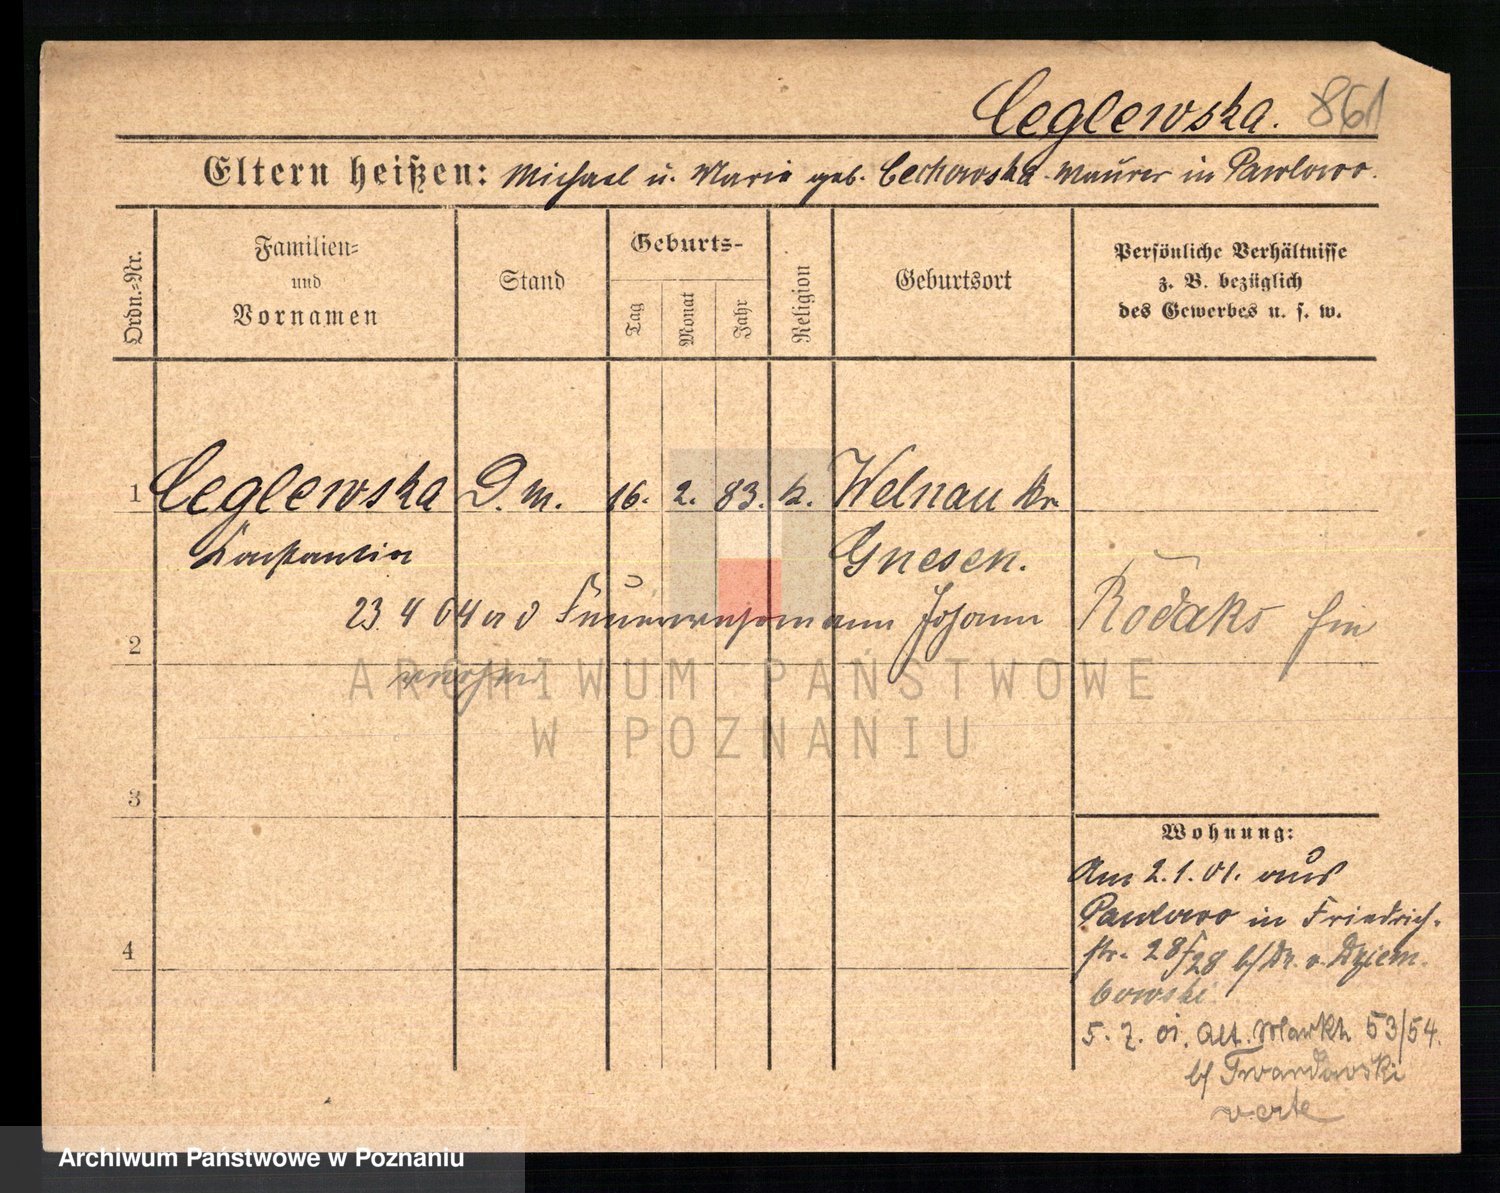 Ceglewska. 861
Eltern heißen: Michael u. Marie geb. Cechowska Maurer in Pawlowo.
Ordn.-Nr.
Familien-
und
Vornamen
Stand
Geburts-
Tag
Monat
Jahr
Religion
Geburtsort
Persönliche Verhältnisse
z. B. bezüglich
des Gewerbes u. s. w.
1 Ceglewska D.m. 16. 2. 83. k. Welnau Kr.
Constantin Gnesen.
23 4 04 Feuerwehrmann Johann
2
ARCHIWUM PAŃSTWOWE
W POZNANIU
3
Wohnung:
Am 2.1.01. aus
Pawlowo in Friedrich-
str. 28/28 b/ Dr. v. Dziem-
bowski
4
5. 7. 01. Alt. Markt 53/54.
b/ Twardowski
verte
Archiwum Państwowe w Poznaniu